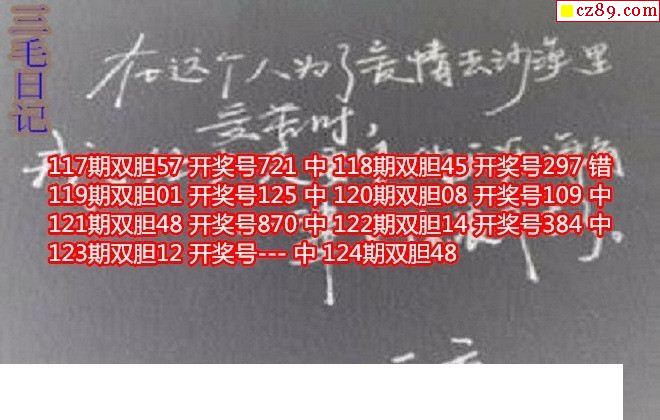 cz89.com
三毛日记
在这个人为了爱情去沙漠里
受苦时,
117期双胆57 开奖号721 中 118期双胆45 开奖号297 错
119期双胆01 开奖号125 中 120期双胆08 开奖号109 中
121期双胆48 开奖号870 中 122期双胆14 开奖号384 中
123期双胆12 开奖号--- 中 124期双胆48